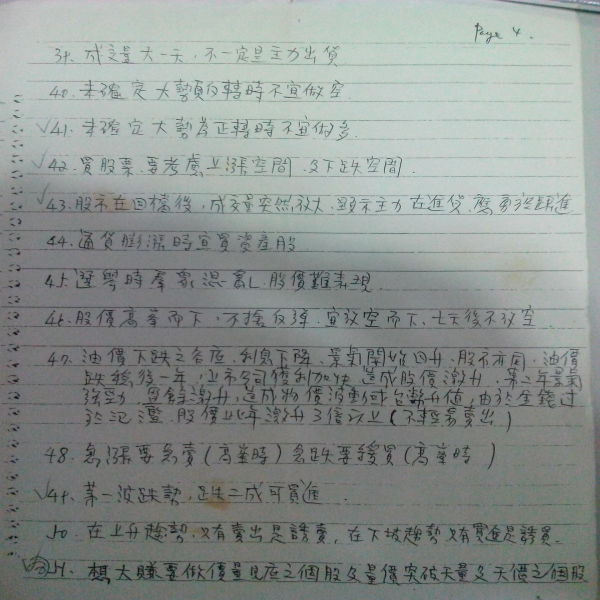 Page 4.
39. 成交量大一天,不一定是主力出貨
40. 未確定大勢頂反轉時不宜做空
✓41. 未確定大勢為正轉時不宜做多
✓42. 買股票,要考慮上漲空間及下跌空間.
✓43. 股市在回檔後,成交量突然放大,顯示主力在進貨,應
44. 通貨膨漲時宜買資產股
45. 選舉時羣眾混亂,股價難表現
46. 股價高峯而下,不搶反彈,宜放空而下,七天後不放空
47. 油價下跌之效應,利息下降,景氣開始回升,股市亦同,油價
跌穩後一年,上市公司獲利加快,造成股價激升,第二年景氣
強勁,激升,造成物價波動或台幣升值,由於金錢過
於氾濫,股價激升3倍以上(不輕易賣出)
48. 急漲要急賣(高峯時)急跌要緩買(高峯時)
✓49. 第一波跌勢,跌二成可買進.
50. 在上升趨勢,只有賣出是誘賣,在下坡趨勢只有買進是誘買.
51. 想大賺要做價量反應之個股及量價突破天量及天價之個股